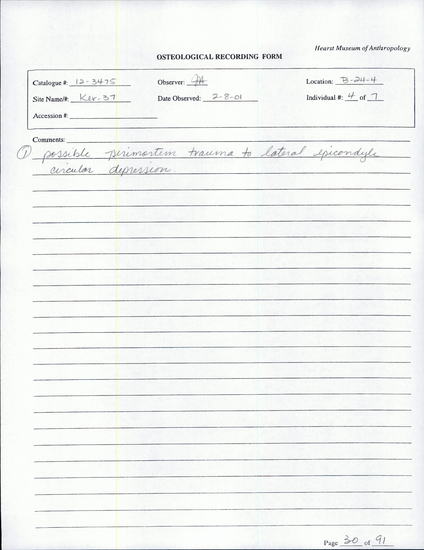 Hearst Museum of Anthropology
OSTEOLOGICAL RECORDING FORM
Catalogue #: 12-3475 Observer: JH Location: B-24-4
Site Name/#: Ker-37 Date Observed: 2-8-01 Individual #: 4 of 7
Accession #:
Comments:
① possible perimortem trauma to lateral epicondyle
circular depression
Page 30 of 91